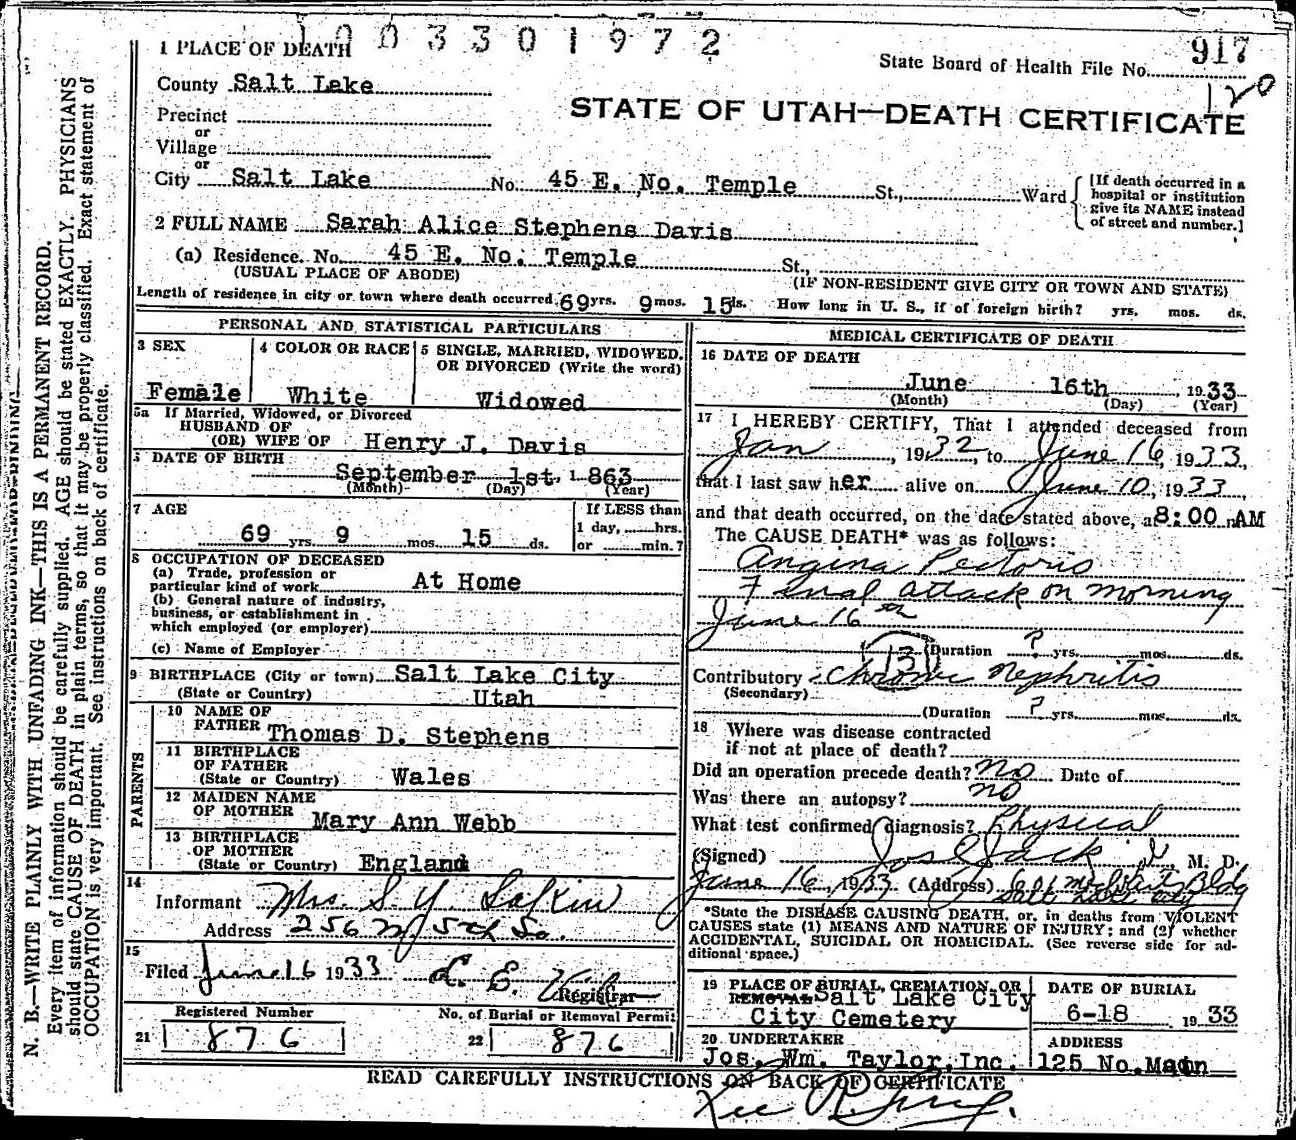 1003301972
1 PLACE OF DEATH
State Board of Health File No. 917
120
County Salt Lake
STATE OF UTAH—DEATH CERTIFICATE
Precinct
or
Village
or
City Salt Lake No. 45 E. No. Temple St., Ward
[If death occurred in a
hospital or institution
give its NAME instead
of street and number.]
2 FULL NAME Sarah Alice Stephens Davis
(a) Residence. No. 45 E. No. Temple St.,
(USUAL PLACE OF ABODE) (IF NON-RESIDENT GIVE CITY OR TOWN AND STATE)
Length of residence in city or town where death occurred 69 yrs. 9 mos. 15 ds. How long in U. S., if of foreign birth? yrs. mos. ds.
PERSONAL AND STATISTICAL PARTICULARS
3 SEX
Female
4 COLOR OR RACE
White
5 SINGLE, MARRIED, WIDOWED,
OR DIVORCED (Write the word)
Widowed
5a If Married, Widowed, or Divorced
HUSBAND OF
(OR) WIFE OF Henry J. Davis
DATE OF BIRTH
September 1st, 1863
(Month) (Day) (Year)
7 AGE
69 yrs. 9 mos. 15 ds.
If LESS than
1 day, hrs.
or min.?
8 OCCUPATION OF DECEASED
(a) Trade, profession or
particular kind of work At Home
(b) General nature of industry,
business, or establishment in
which employed (or employer)
(c) Name of Employer
9 BIRTHPLACE (City or town) Salt Lake City
(State or Country) Utah
PARENTS
10 NAME OF
FATHER Thomas D. Stephens
11 BIRTHPLACE
OF FATHER
(State or Country) Wales
12 MAIDEN NAME
OF MOTHER Mary Ann Webb
13 BIRTHPLACE
OF MOTHER
(State or Country) England
14
Informant Mrs S Y
Address 256 W 5th So.
15
Filed June 16 1933
Registrar
Registered Number
21 876
No. of Burial or Removal Permit
22 876
MEDICAL CERTIFICATE OF DEATH
16 DATE OF DEATH
June 16th, 1933
(Month) (Day) (Year)
17 I HEREBY CERTIFY, That I attended deceased from
Jan, 1932, to June 16, 1933,
that I last saw her alive on June 10, 1933
and that death occurred, on the date stated above, at 8:00 AM
The CAUSE DEATH* was as follows:
Angina Pectoris
Final attack on morning
June 16th
131
(Duration ? yrs. mos. ds.
Contributory Chronic Nephritis
(Secondary)
(Duration ? yrs. mos. ds.
18 Where was disease contracted
if not at place of death?
Did an operation precede death? no Date of
Was there an autopsy? no
What test confirmed diagnosis? Physical
(Signed) Jos E Jack M. D.
June 16, 1933 (Address) Bldg
Salt Lake City
*State the DISEASE CAUSING DEATH, or, in deaths from VIOLENT
CAUSES state (1) MEANS AND NATURE OF INJURY; and (2) whether
ACCIDENTAL, SUICIDAL OR HOMICIDAL. (See reverse side for ad-
ditional space.)
19 PLACE OF BURIAL, CREMATION, OR
REMOVAL Salt Lake City
City Cemetery
DATE OF BURIAL
6-18 1933
20 UNDERTAKER
Jos. Wm. Taylor, Inc.
ADDRESS
125 No. Main
READ CAREFULLY INSTRUCTIONS ON BACK OF CERTIFICATE
N. B.—WRITE PLAINLY WITH UNFADING INK—THIS IS A PERMANENT RECORD.
Every item of information should be carefully supplied. AGE should be stated EXACTLY. PHYSICIANS
should state CAUSE OF DEATH in plain terms, so that it may be properly classified. Exact statement of
OCCUPATION is very important. See instructions on back of certificate.